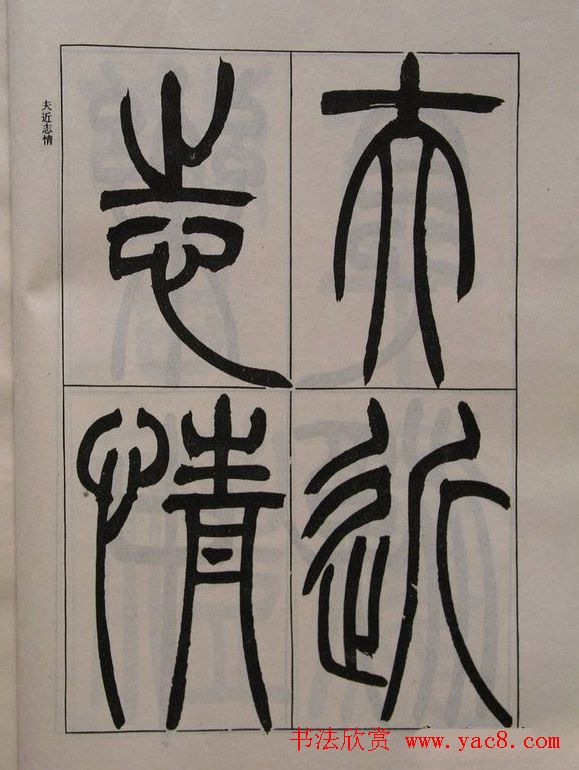 夫近
志情
夫近志情
书法欣赏 www.yac8.com